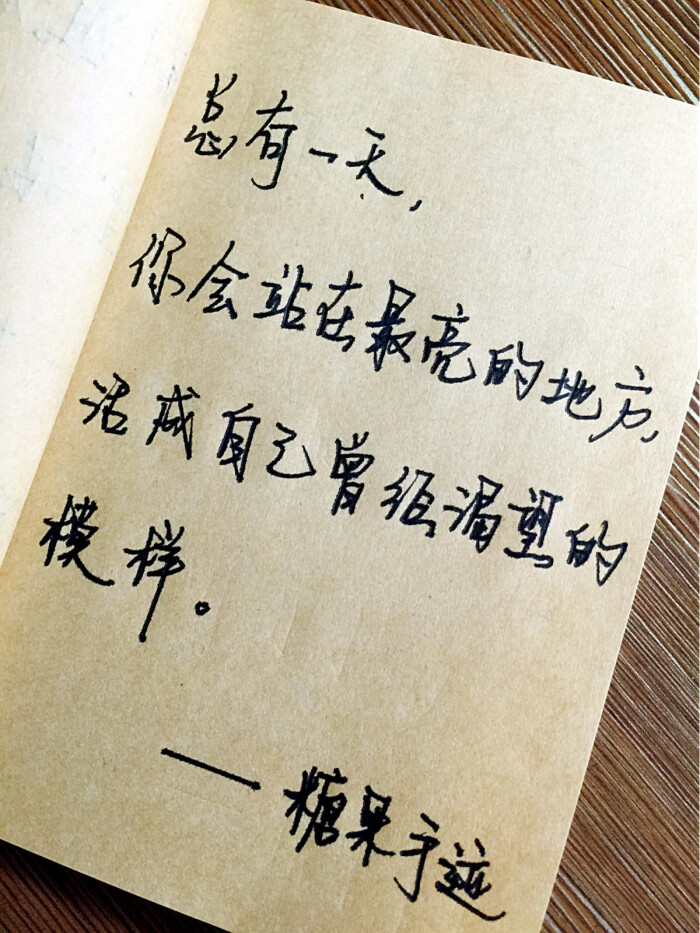 总有一天，
你会站在最亮的地方，
活成自己曾经渴望的
模样。
——糖果手迹